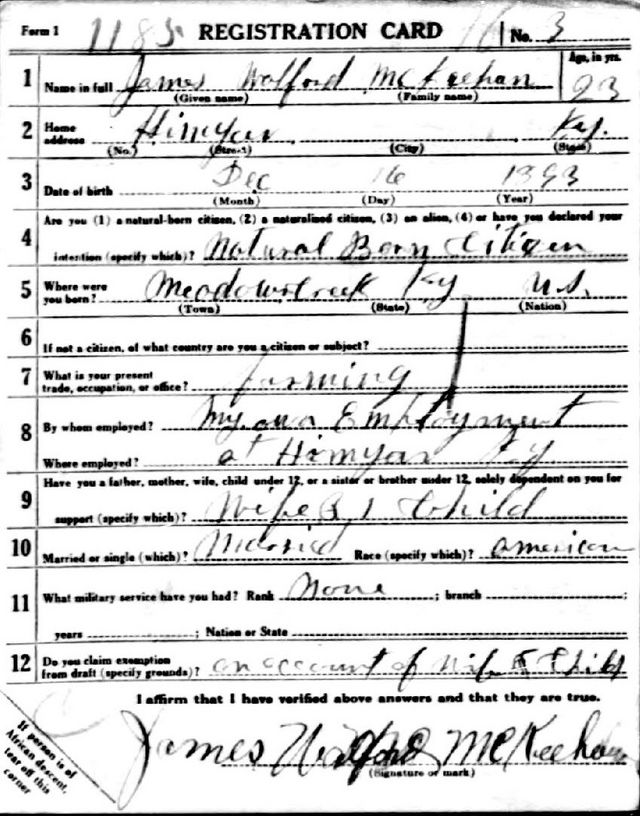 Form 1 1185 REGISTRATION CARD No. 3
1 Name in full James Wolford McKeehan Age, in yrs. 23
(Given name) (Family name)
2 Home address Himyar Ky.
(No.) (Street) (City) (State)
3 Date of birth Dec 16 1893
(Month) (Day) (Year)
4 Are you (1) a natural-born citizen, (2) a naturalized citizen, (3) an alien, (4) or have you declared your
intention (specify which)? Natural Born Citizen
5 Where were you born? Meadowcreek Ky U.S.
(Town) (State) (Nation)
6 If not a citizen, of what country are you a citizen or subject?
7 What is your present trade, occupation, or office? farming
8 By whom employed? My own Employment
Where employed? at Himyar Ky
9 Have you a father, mother, wife, child under 12, or a sister or brother under 12, solely dependent on you for
support (specify which)? Wife & 1 Child
10 Married or single (which)? Married Race (specify which)? American
11 What military service have you had? Rank None ; branch ;
years ; Nation or State
12 Do you claim exemption from draft (specify grounds)? on account of Wife & Child
I affirm that I have verified above answers and that they are true.
James Wolford McKeehan
(Signature or mark)
If person is of
African descent,
tear off this
corner